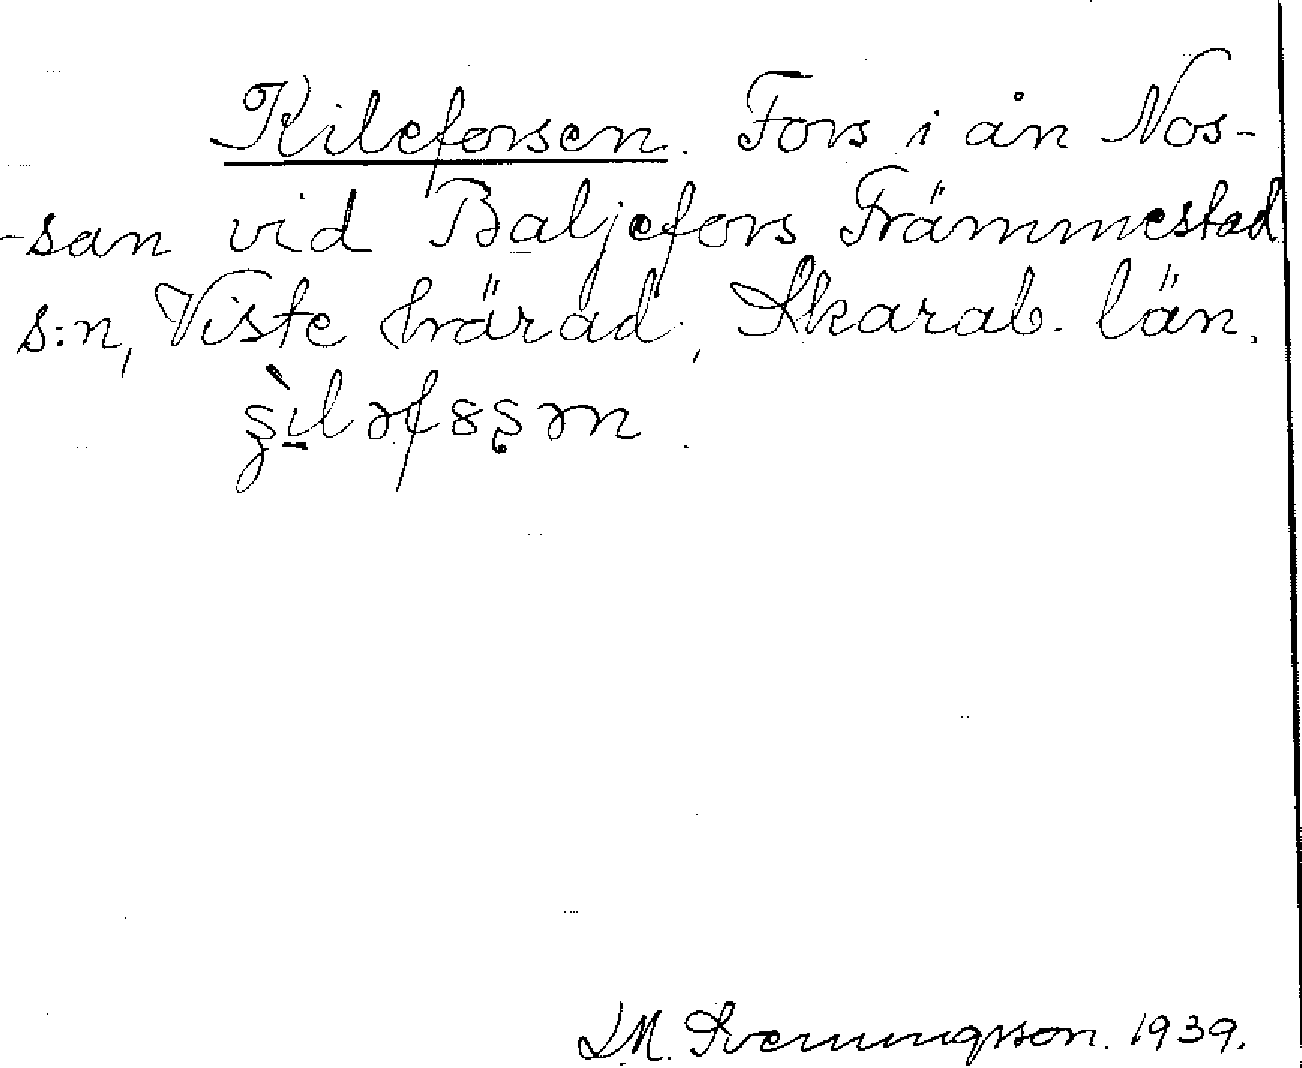 Kileforsen. Fors i ån Nos-
-san vid Baljefors Främmestad
s:n, Viste härad, Skarab. län.
1939.